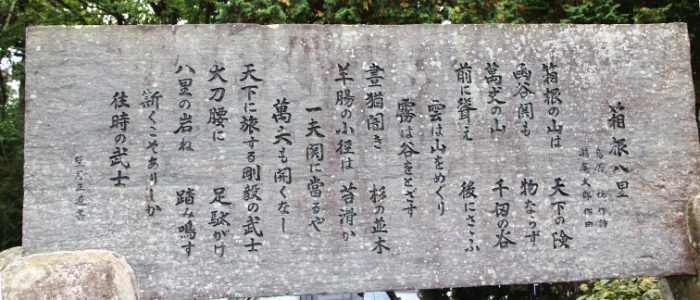 箱根八里
鳥居 忱 作詩
瀧廉太郎 作曲
箱根の山は 天下の険
函谷関も 物ならず
萬丈の山 千仞の谷
前に聳え 後にさふ
雲は山をめぐり
霧は谷をとざす
晝猶闇き 杉の並木
羊腸の小径は 苔滑か
一夫関に當るや
萬夫も開くなし
天下に旅する剛毅の武士
大刀腰に 足駄がけ
八里の岩ね 踏み鳴す
斯くこそありしか
往時の武士